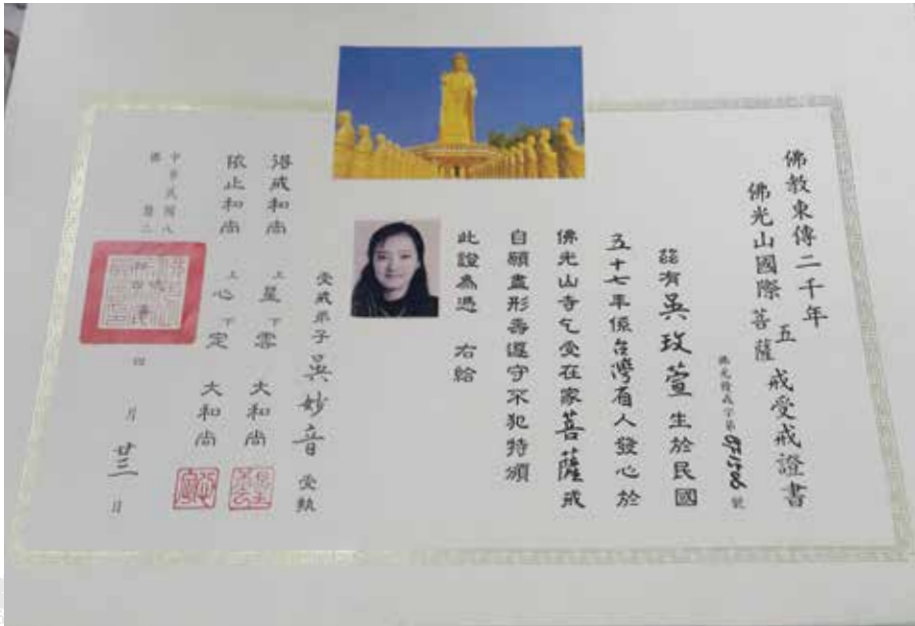 佛教東傳二千年
佛光山國際菩薩五戒受戒證書
佛光獲戒字第號
茲有吳玫萱生於民國
五十七年係台灣省人發心於
佛光山寺乞受在家菩薩戒
自願盡形壽遵守不犯特頒
此證為憑 右給
受戒弟子吳妙音受執
得戒和尚上星下雲大和尚
依止和尚上心下定大和尚
中華民國八
佛曆二
四月廿三日